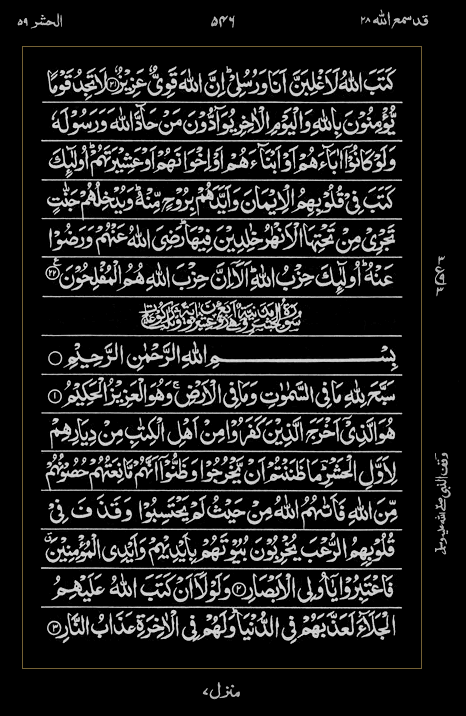 قد سمع الله ٢٨
٥٤٦
الحشر ٥٩
كَتَبَ اللّٰهُ لَاَغْلِبَنَّ اَنَا وَرُسُلِیْ ؕ اِنَّ اللّٰهَ قَوِیٌّ عَزِیْزٌ ﴿٢١﴾ لَا تَجِدُ قَوْمًا
یُّؤْمِنُوْنَ بِاللّٰهِ وَالْیَوْمِ الْاٰخِرِ یُوَآدُّوْنَ مَنْ حَآدَّ اللّٰهَ وَرَسُوْلَهٗ
وَلَوْ كَانُوْۤا اٰبَآءَهُمْ اَوْ اَبْنَآءَهُمْ اَوْ اِخْوَانَهُمْ اَوْ عَشِیْرَتَهُمْ ؕ اُولٰٓئِكَ
كَتَبَ فِیْ قُلُوْبِهِمُ الْاِیْمَانَ وَاَیَّدَهُمْ بِرُوْحٍ مِّنْهُ ؕ وَیُدْخِلُهُمْ جَنّٰتٍ
تَجْرِیْ مِنْ تَحْتِهَا الْاَنْهٰرُ خٰلِدِیْنَ فِیْهَا ؕ رَضِیَ اللّٰهُ عَنْهُمْ وَرَضُوْا
عَنْهُ ؕ اُولٰٓئِكَ حِزْبُ اللّٰهِ ؕ اَلَاۤ اِنَّ حِزْبَ اللّٰهِ هُمُ الْمُفْلِحُوْنَ ﴿٢٢﴾
بِسْمِ اللّٰهِ الرَّحْمٰنِ الرَّحِیْمِ
سَبَّحَ لِلّٰهِ مَا فِی السَّمٰوٰتِ وَمَا فِی الْاَرْضِ ۚ وَهُوَ الْعَزِیْزُ الْحَكِیْمُ ﴿١﴾
هُوَ الَّذِیْۤ اَخْرَجَ الَّذِیْنَ كَفَرُوْا مِنْ اَهْلِ الْكِتٰبِ مِنْ دِیَارِهِمْ
لِاَوَّلِ الْحَشْرِ ؕ مَا ظَنَنْتُمْ اَنْ یَّخْرُجُوْا وَظَنُّوْۤا اَنَّهُمْ مَّانِعَتُهُمْ حُصُوْنُهُمْ
مِّنَ اللّٰهِ فَاَتٰىهُمُ اللّٰهُ مِنْ حَیْثُ لَمْ یَحْتَسِبُوْا وَقَذَفَ فِیْ
قُلُوْبِهِمُ الرُّعْبَ یُخْرِبُوْنَ بُیُوْتَهُمْ بِاَیْدِیْهِمْ وَاَیْدِی الْمُؤْمِنِیْنَ ۗ
فَاعْتَبِرُوْا یٰۤاُولِی الْاَبْصَارِ ﴿٢﴾ وَلَوْلَاۤ اَنْ كَتَبَ اللّٰهُ عَلَیْهِمُ
الْجَلَآءَ لَعَذَّبَهُمْ فِی الدُّنْیَا ؕ وَلَهُمْ فِی الْاٰخِرَةِ عَذَابُ النَّارِ ﴿٣﴾
منزل ٧